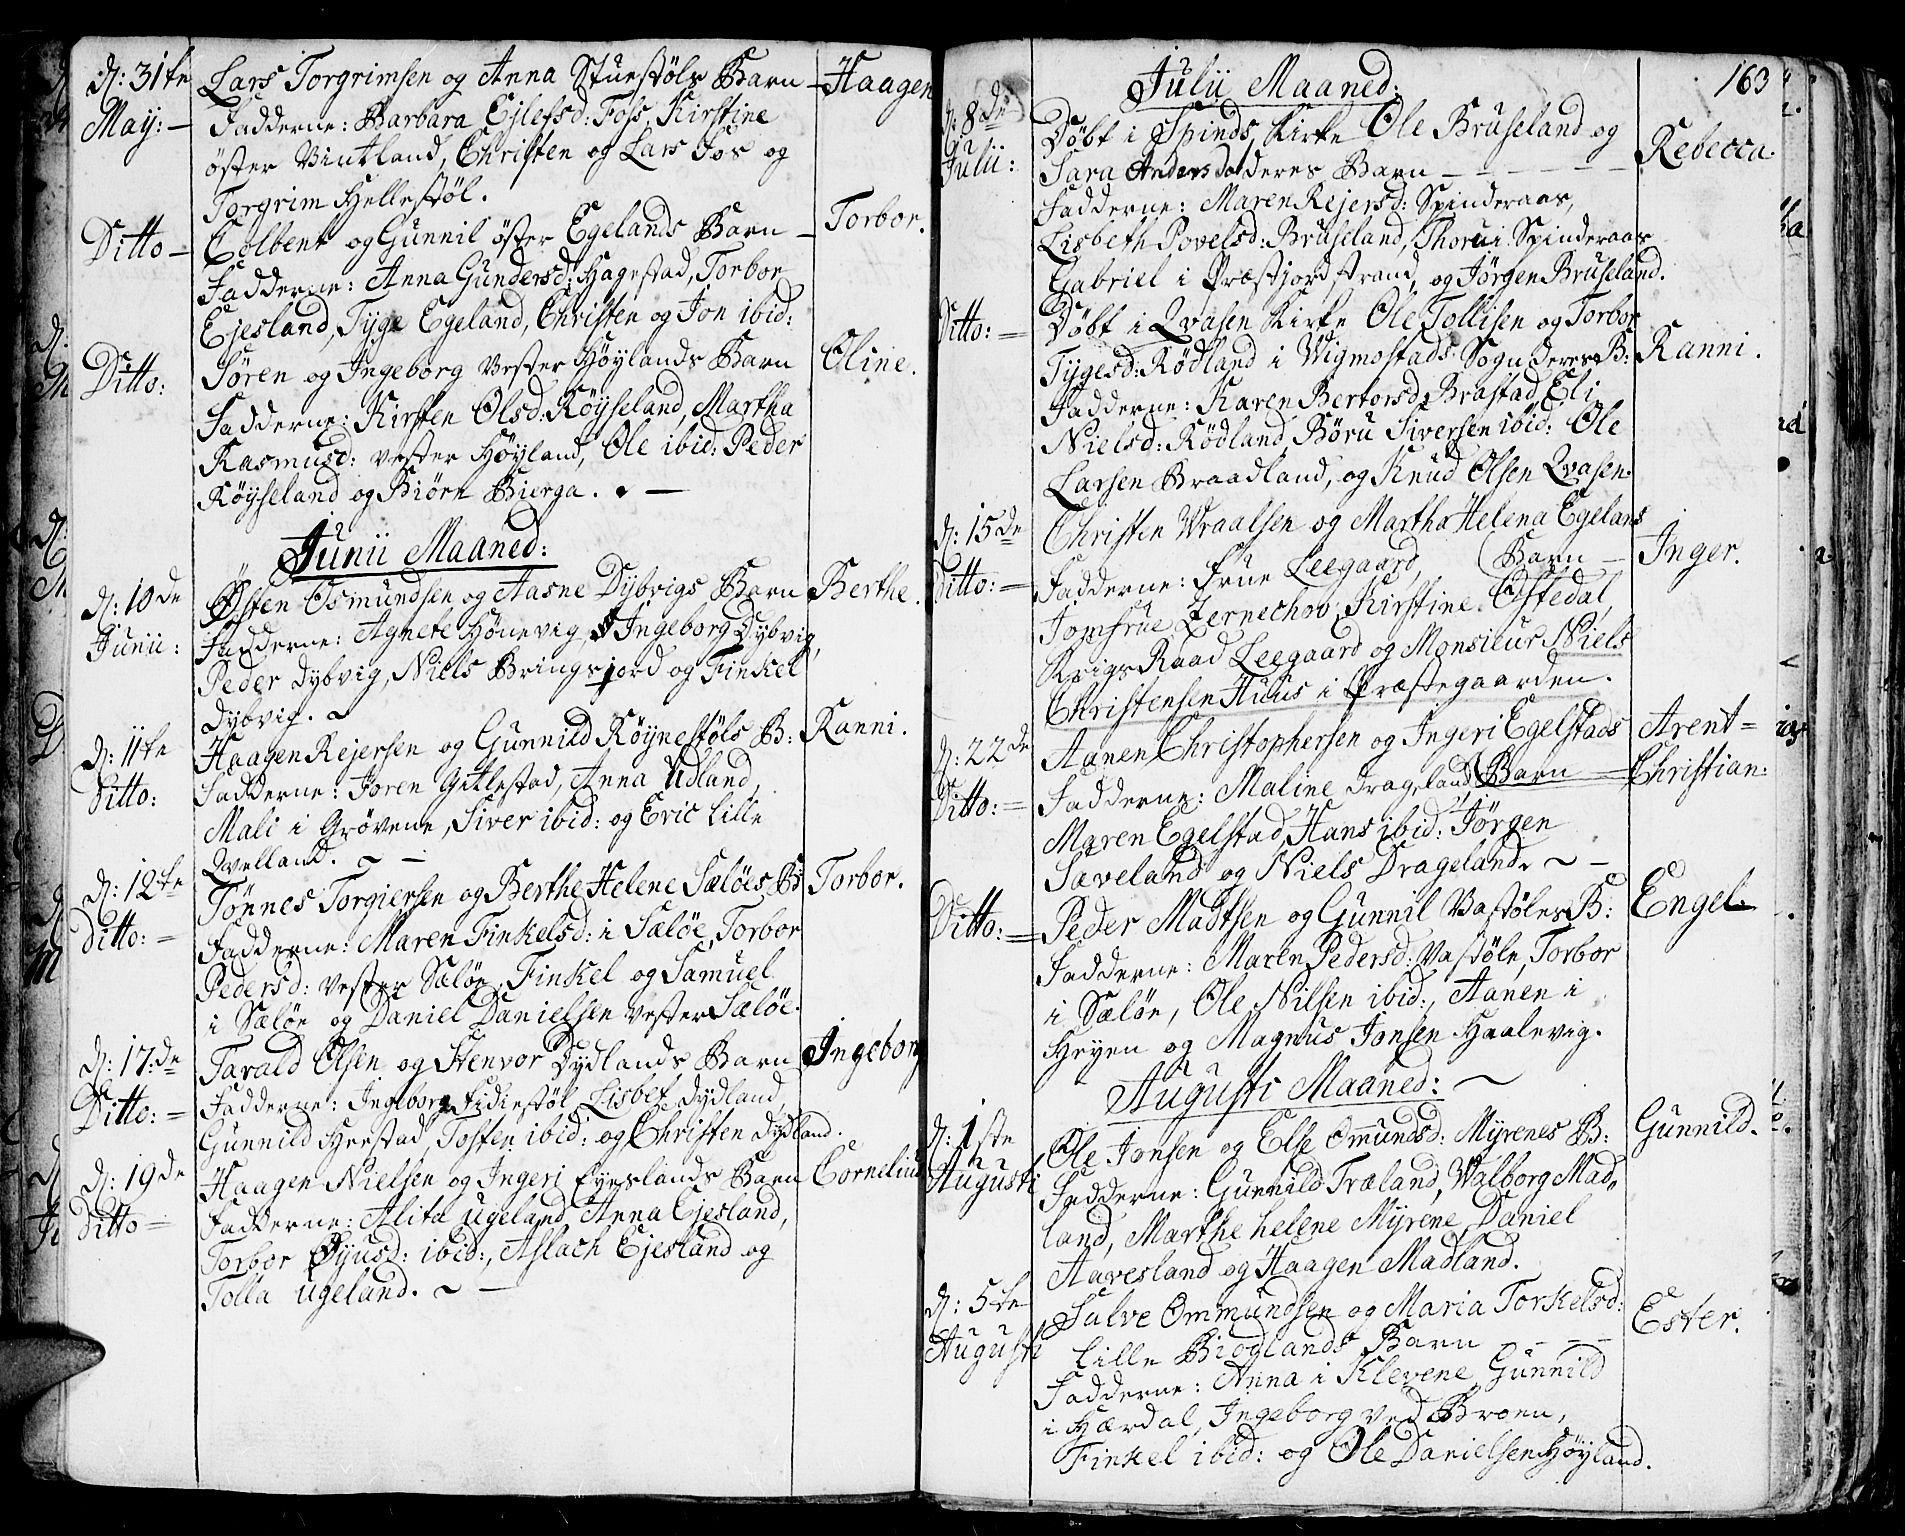 d: 31te Lars Torgrimsen og Anna Stuestöls Barn – Haagen
May: – Fadderne: Barbara Ejlefsd: Foss, Kirstine
öster Vintland, Christen og Lars Fos og
Torgrim Hellestöl.
Ditto – Colbent og Gunnil öster Egelands Barn – Torbor.
Fadderne: Anna Gundersd: Hagestad, Torbor
Ejesland, Tyge Egeland, Christen og Jon ibid:
Ditto: Sören og Ingeborg Vester Höylands Barn Oline.
Fadderne: Kirsten Olsd: Röyseland, Martha
Rasmusd: vester Höyland, Ole ibid: Peder
Röyseland og Biörn Bierga. –
Junii Maaned:
d: 10de Østen Osmundsen og Aasne Dybvigs Barn Berthe.
Junii: Fadderne: Agnete Hönevig, Ingeborg Dybvig,
Peder Dybvig, Niels Bringsjord og Finkel
Dybvig. ~
d: 11te Haagen Rejersen og Gunnild Röynestöls B: Ranni.
Ditto: Fadderne: Joren Gitlestad, Anna Udland,
Mali i Grövene, Siver ibid: og Eric Lille
Qvelland. ~ –
d: 12te Tönnes Torgiersen og Berthe Helene Sælöes B: Torbor.
ditto: = Fadderne: Maren Finkelsd: i Sælöe, Torbor
Pedersd: vester Sælöe, Finkel og Samuel
i Sælöe og Daniel Danielsen vester Sælöe.
d: 17:de Tarald Olsen og Stenvor Dydlands Barn Ingeborg
Ditto: = Fadderne: Ingeborg Fidiestöl, Lisbet Dydland,
Gunnild Herstad, Tosten ibid: og Christen Dydland.
d: 19de Haagen Nielsen og Ingeri Eyeslands Barn Cornelius
Ditto = Fadderne: Alita Ugeland, Anna Ejesland,
Torbor Øyusd: ibid:, Aslach Ejesland og
Tolla Ugeland. ~ –
163
Julii Maaned:
d: 8de Döbt i Spinds Kirke Ole Bruseland og
Julii: Sara Anders deres Barn – – – – – – Rebecca.
Fadderne: Maren Rejersd: Spinderaas,
Lisbeth Povelsd: Bruseland, Spinderaas
Gabriel i Præstjordstrand, og Jörgen Bruseland.
Ditto: = Döbt i Qvasen Kirke Ole Tollisen og Torbor
Tygesd: Rödland i Vigmostads Sogn deres B: Ranni.
Fadderne: Karen Bertorsd Brastad, Eli
Nielsd: Rödland, Böru Siversen ibid: Ole
Larsen Braadland, og Knud Olsen Qvasen.
d: 15de Christen Vraalsen og Martha Helena Egelans
Ditto: = Fadderne: Frue Leegaard, (Barn – Inger.
Jomfrue Zernechov, Kirstine Ostedal,
Krigs Raad Leegaard og Monsieur Niels
Christensen Huus i Præstegaarden.
d: 22de Aanen Christophersen og Ingeri Egelstads Arent=
Ditto: = Fadderne: Maline Drageland, (Barn – Christian:
Maren Egelstad, Hans ibid: Jörgen
Saveland og Niels Drageland. ~ –
Ditto: = Peder Madtsen og Gunnil Vastöles B: Engel.
Fadderne: Maren Pedersd: Vastöle, Torbor
i Sælöe, Ole Nilsen ibid:, Aanen i
Heyen og Magnus Jonsen Haalevig.
Augusti Maaned: ~
d: 1ste Ole Jonsen og Else Omundsd: Myrenes B: Gunnild.
Augusti Fadderne: Gunnild Træland, Walborg Mad,,
land, Marthe helene Myrene, Daniel
Aavesland og Haagen Madland.
d: 5te Salve Ommundsen og Maria Torkelsd: Ester.
Augusti Lille Biodlands Barn – – – –
Fadderne: Anna i Klevene, Gunnild
i Hærdal, Ingeborg ved Broen,
Finkel ibid: og Ole Danielsen Höyland.